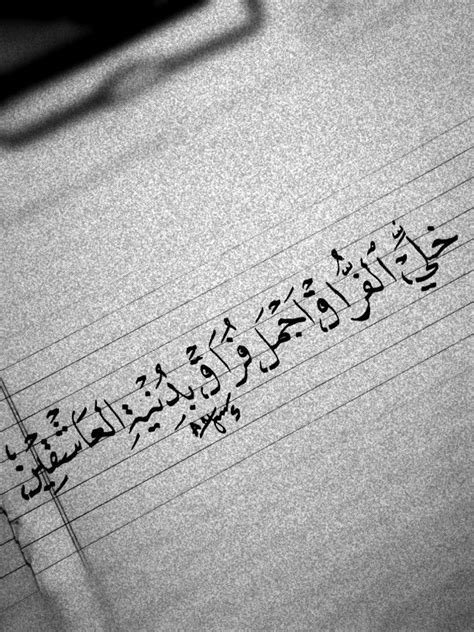 خلّي الفراق اجمل فراق بدنية العاشقين